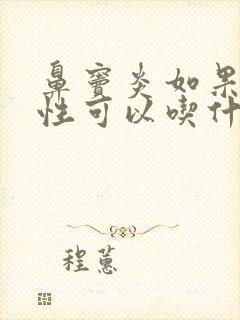 鼻窦炎如果
性可以喫什
程蕙